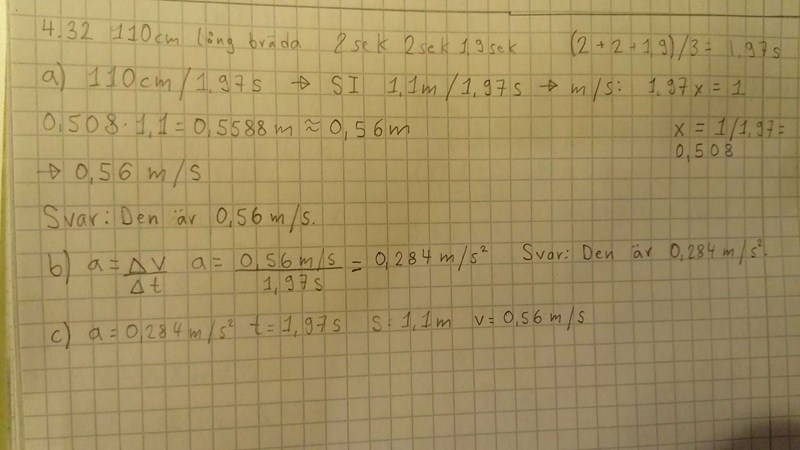 4.32 110cm lång bräda 2sek 2sek 1,9sek (2+2+1,9)/3= 1,97s
a) 110cm/1,97s → SI 1,1m/1,97s → m/s: 1,97x = 1
0,508·1,1=0,5588m≈0,56m x = 1/1,97=
0,508
→ 0,56 m/s
Svar: Den är 0,56 m/s.
b) a = ΔV/Δt a = 0,56 m/s/1,97s = 0,284 m/s² Svar: Den är 0,284 m/s².
c) a=0,284m/s² t=1,97s s=1,1m v=0,56m/s